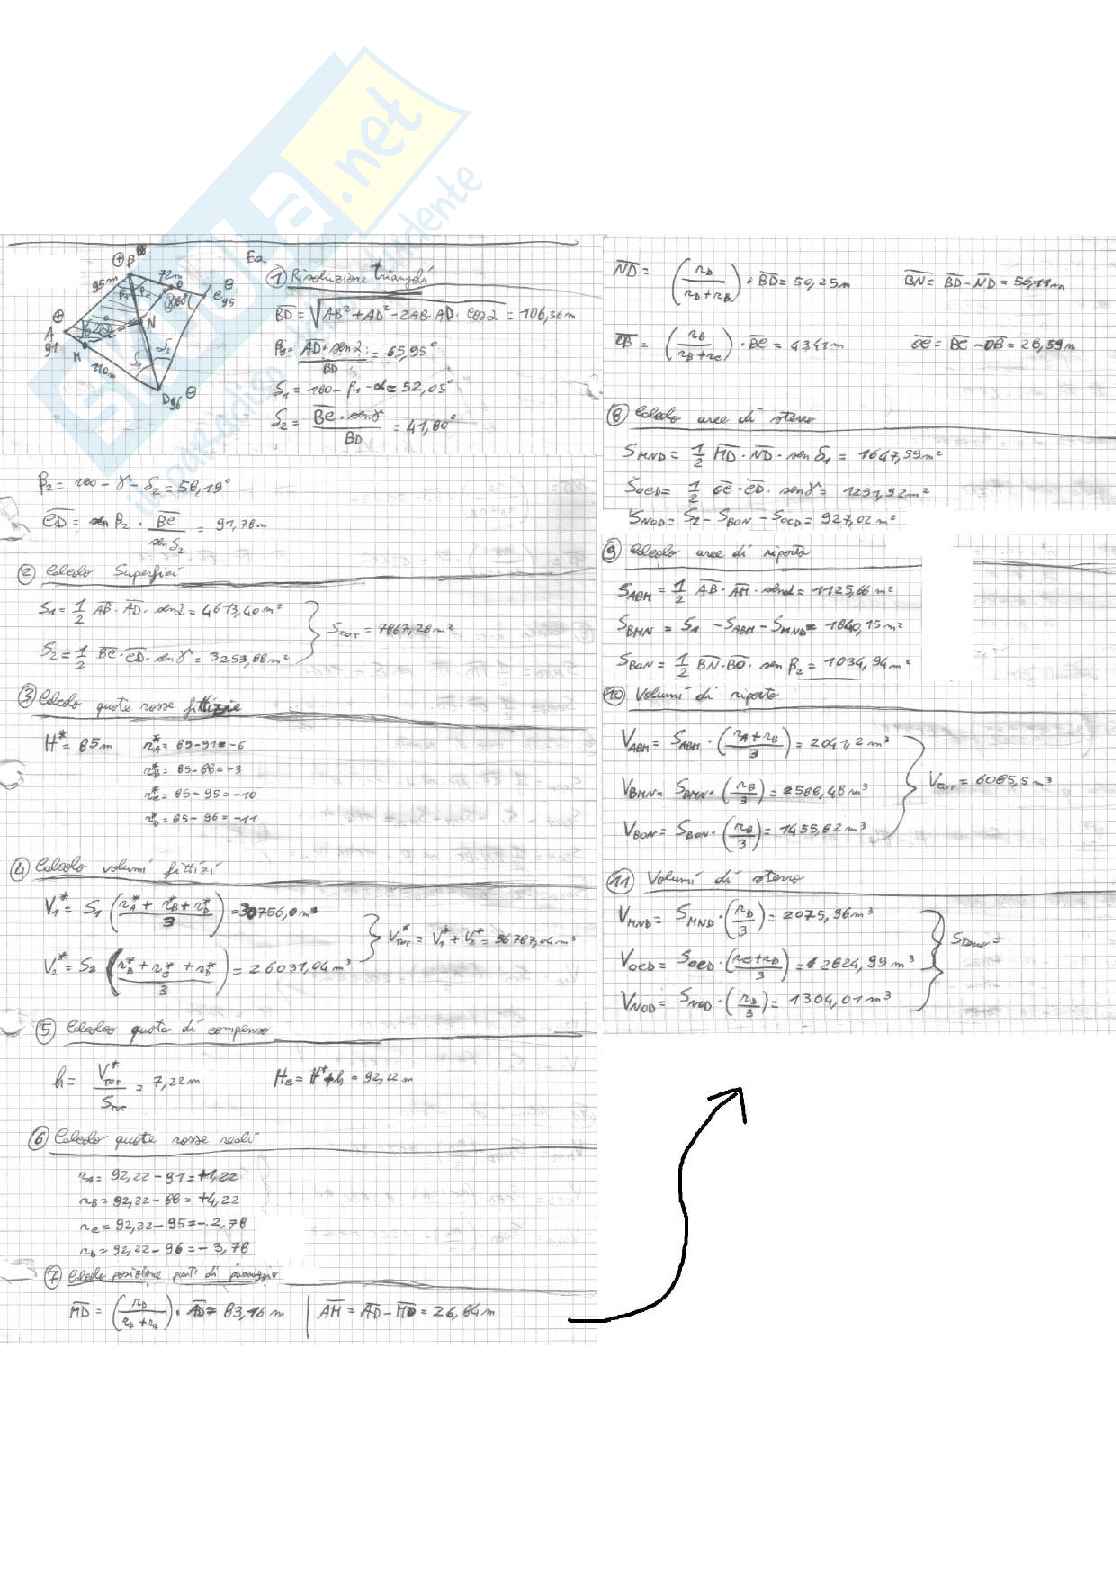 Es.
① Risoluzione triangoli
BD = √AB² + AD² - 2AB·AD·cos α = 106,36m
β₁ = AD·sen α / BD = 65,95°
δ₁ = 180 - β₁ - α = 52,05°
δ₂ = BC·sen γ / BD = 41,80°
⊕ B
95m
72m
β₁
β₂
⊖
C 95
⊖
A
91
N
M
110m
δ₁
δ₂
D 96
⊖
β₂ = 180 - γ - δ₂ = 58,19°
CD = sen β₂ · BC / sen δ₂ = 91,78m
② Calcolo Superfici
S₁ = 1/2 AB·AD·sen α = 4613,40m²
S₂ = 1/2 BC·CD·sen γ = 3253,88m²
Sтот = 7867,28m²
③ Calcolo quote rosse fittizie
H* = 85m
r*A = 85-91 = -6
r*B = 85-88 = -3
r*C = 85-95 = -10
r*D = 85-96 = -11
④ Calcolo volumi fittizi
V₁* = S₁ (r*A + r*B + r*D / 3) = 30756,0m³
V₂* = S₂ (r*B + r*C + r*D / 3) = 26031,04m³
V*TOT = V₁* + V₂* = 56787,04m³
⑤ Calcolo quota di compenso
h = V*TOT / STOT = 7,22m
Hc = H* + h = 92,22m
⑥ Calcolo quote rosse reali
rA = 92,22 - 91 = +1,22
rB = 92,22 - 88 = +4,22
rC = 92,22 - 95 = -2,78
rD = 92,22 - 96 = -3,78
⑦ Calcolo posizione punti di passaggio
MD = (rD / rD + rA) · AD = 83,16m
AM = AD - MD = 26,84m
ND = (rD / rD + rB) · BD = 50,25m
BN = BD - ND = 56,11m
OB = (rB / rB + rC) · BC = 43,41m
OC = BC - OB = 28,59m
⑧ Calcolo aree di sterro
SMND = 1/2 MD·ND·sen δ₁ = 1647,59m²
SOCD = 1/2 OC·CD·sen γ = 1291,92m²
SNOD = S₂ - SBON - SOCD = 927,02m²
⑨ Calcolo aree di riporto
SABM = 1/2 AB·AM·sen α = 1125,66m²
SBMN = S₁ - SABM - SMND = 1840,15m²
SBON = 1/2 BN·BO·sen β₂ = 1034,94m²
⑩ Volumi di riporto
VABM = SABM·(rA + rB / 3) = 2041,2m³
VBMN = SBMN·(rB / 3) = 2588,48m³
VBON = SBON·(rB / 3) = 1455,82m³
VTOT = 6085,5m³
⑪ Volumi di sterro
VMND = SMND·(rD / 3) = 2075,96m³
VOCD = SOCD·(rC + rD / 3) = 2824,99m³
VNOD = SNOD·(rD / 3) = 1304,01m³